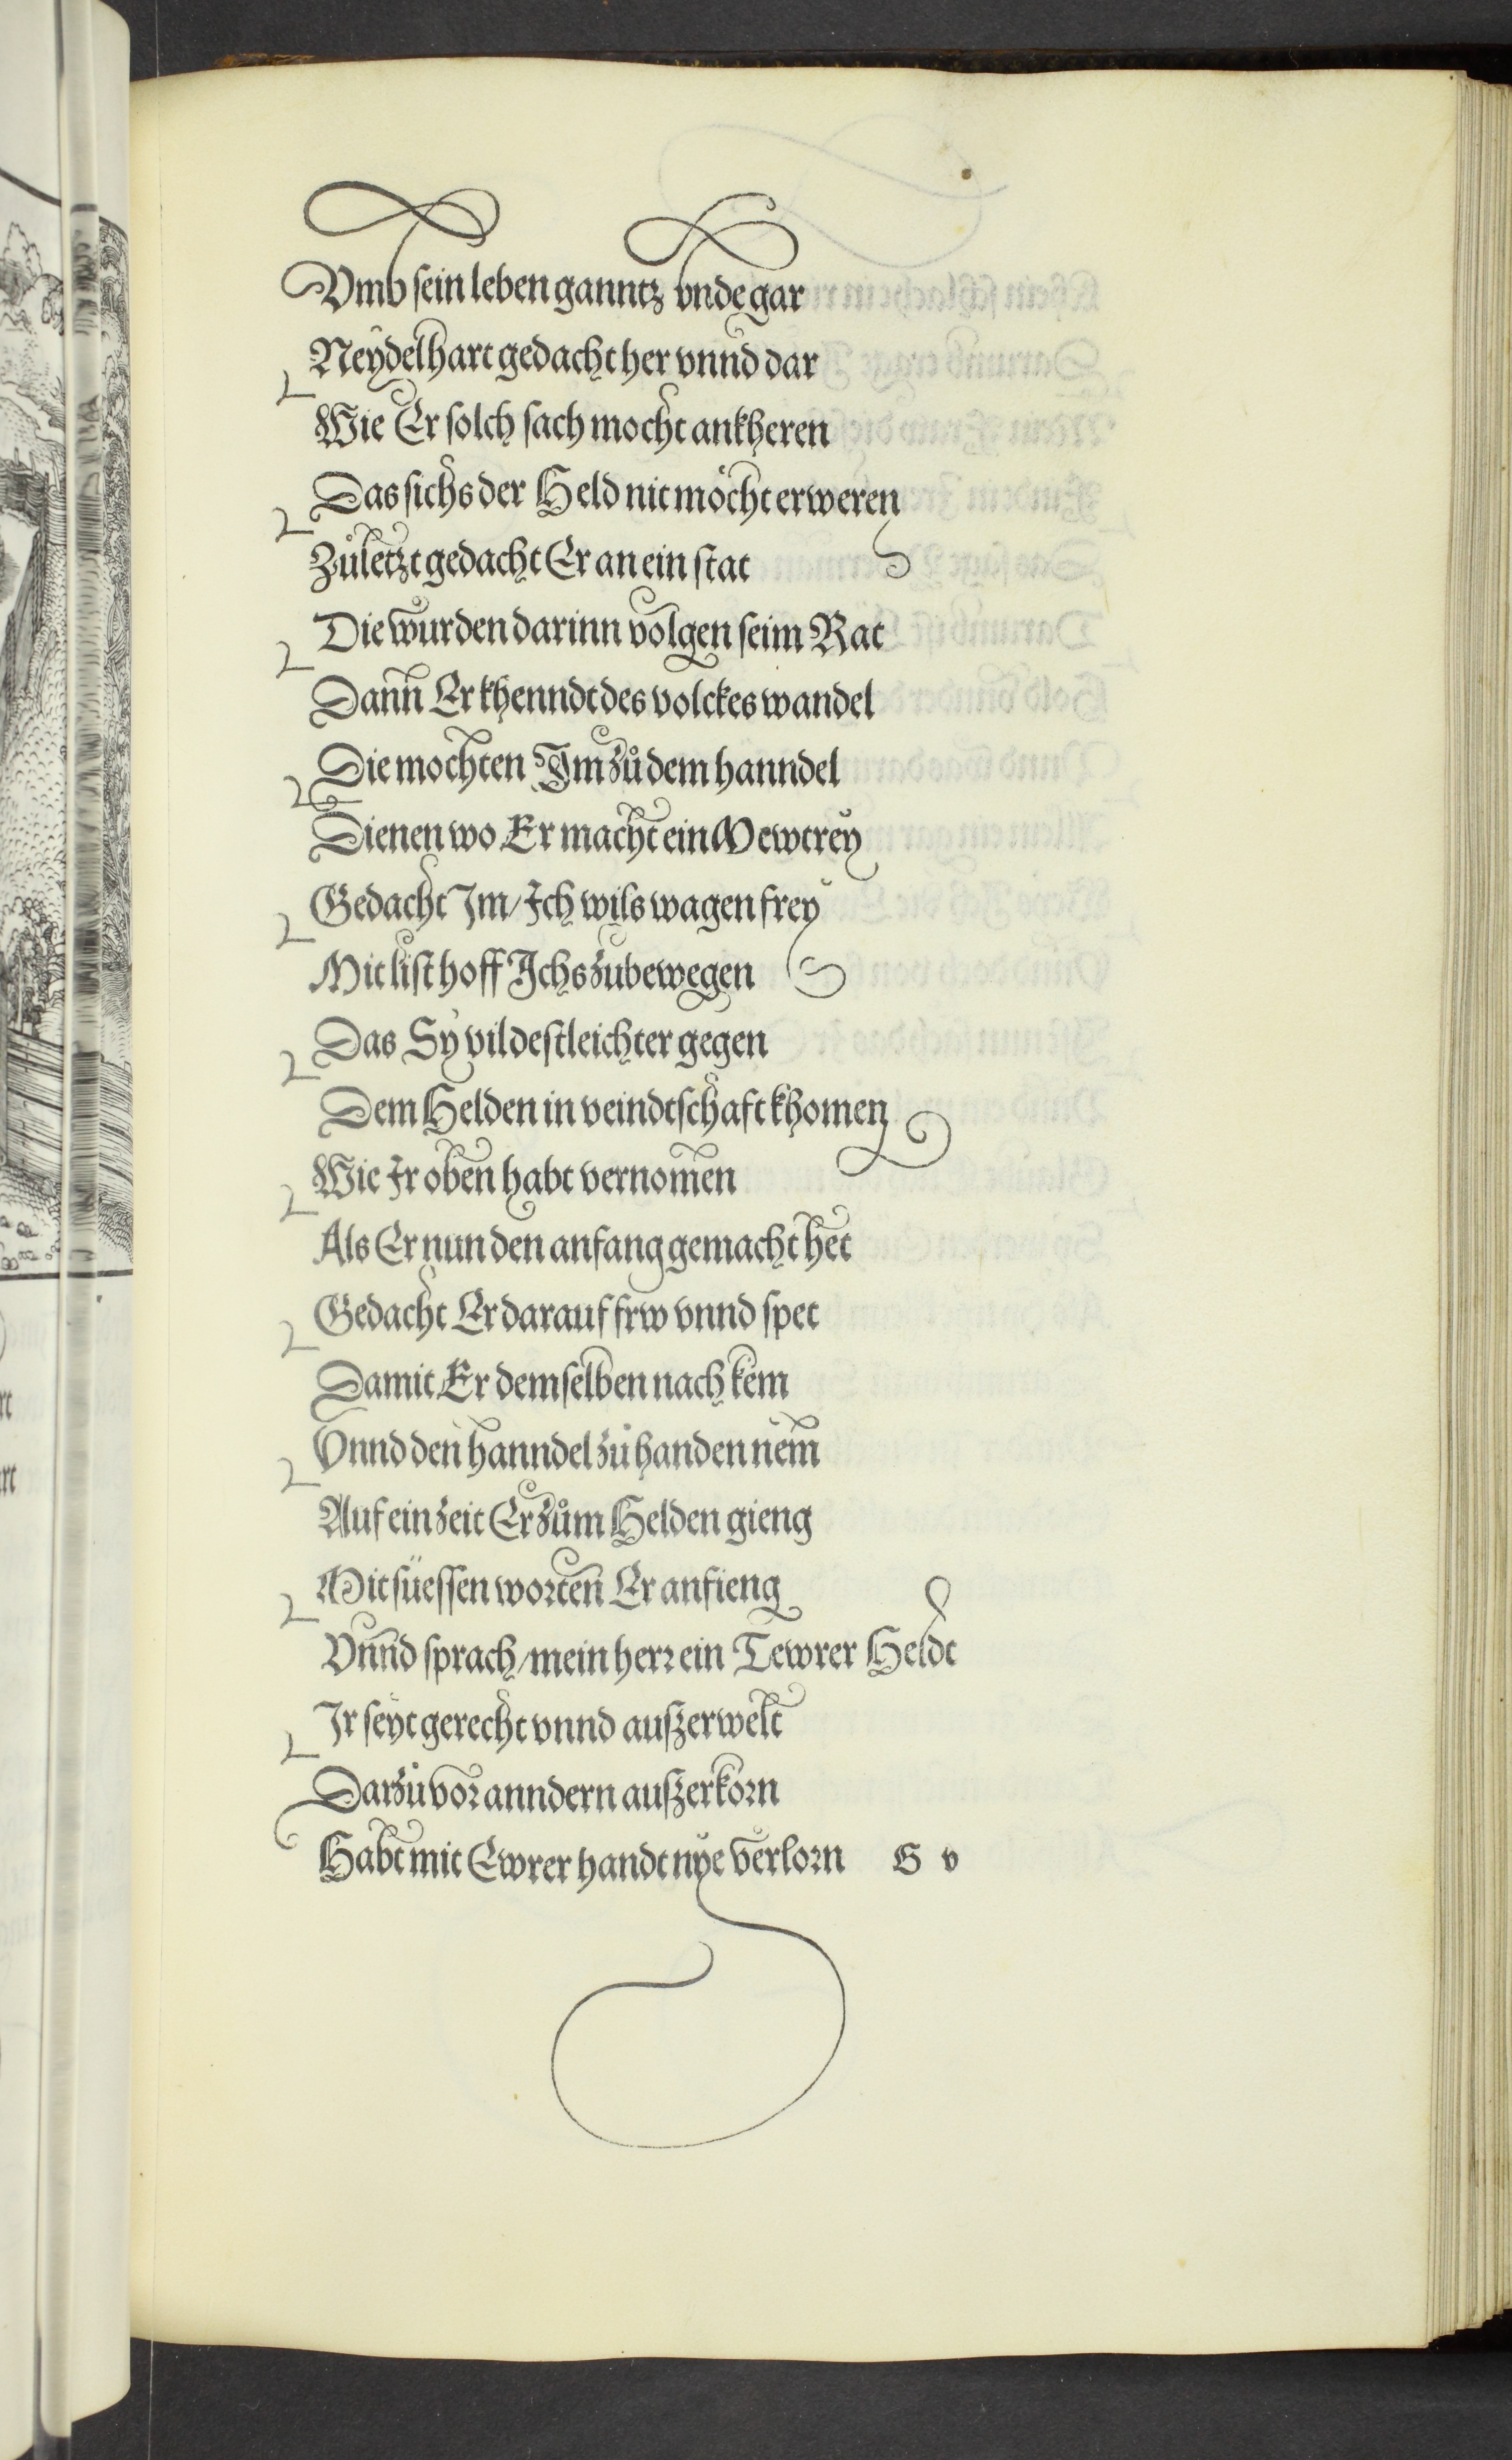 Vmb sein leben ganntz vnde gar
Neydelhart gedacht her vnnd dar
Wie Er solch sach mocht ankheren
Das sichs der Held nit möcht erweren
Zůletzt gedacht Er an ein stat
Die wurden darinn volgen seim Rat
Dann Er khenndt des volckes wandel
Die mochten Im zů dem hanndel
Dienen wo Er macht ein Mewtrey
Gedacht Im / Ich wils wagen frey
Mit list hoff Ichs zubewegen
Das Sy vil destleichter gegen
Dem Helden in veindtschaft khomen
Wie Ir oben habt vernomen
Als Er nun den anfang gemacht het
Gedacht Er darauf frw vnnd spet
Damit Er demselben nach kem
Vnnd den hanndel zů handen nem
Auf ein zeit Er zům Helden gieng
Mit süessen worten Er anfieng
Vnnd sprach / mein herr ein Tewrer Heldt
Ir seyt gerecht vnnd auszerwelt
Darzů vor anndern auszerkorn
Habt mit Ewrer handt nye verlorn G v